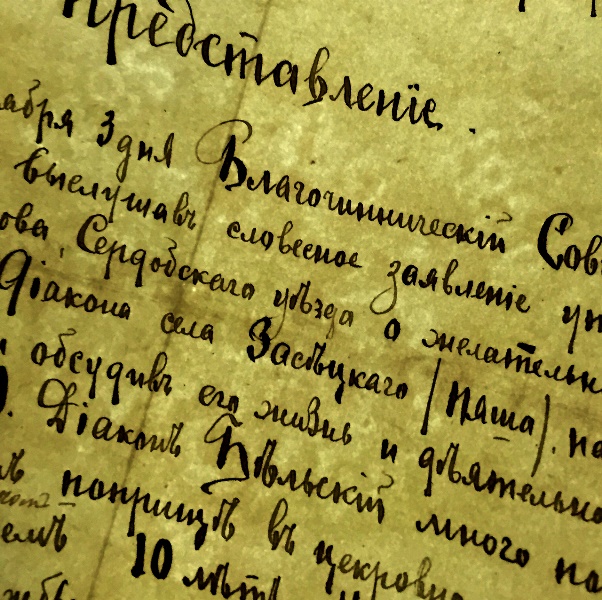 Представленіе.
абря 3 дня Благочинническій Сов
выслушавъ словесное заявленіе
ова, Сердобскаго уѣзда о желательн
Діакона села Засѣцкаго (Паша). на
обсудивъ его жизнь и дѣятельно
Діаконъ Бѣльскій много по
поприщѣ въ церковно
емъ 10 лѣтъ